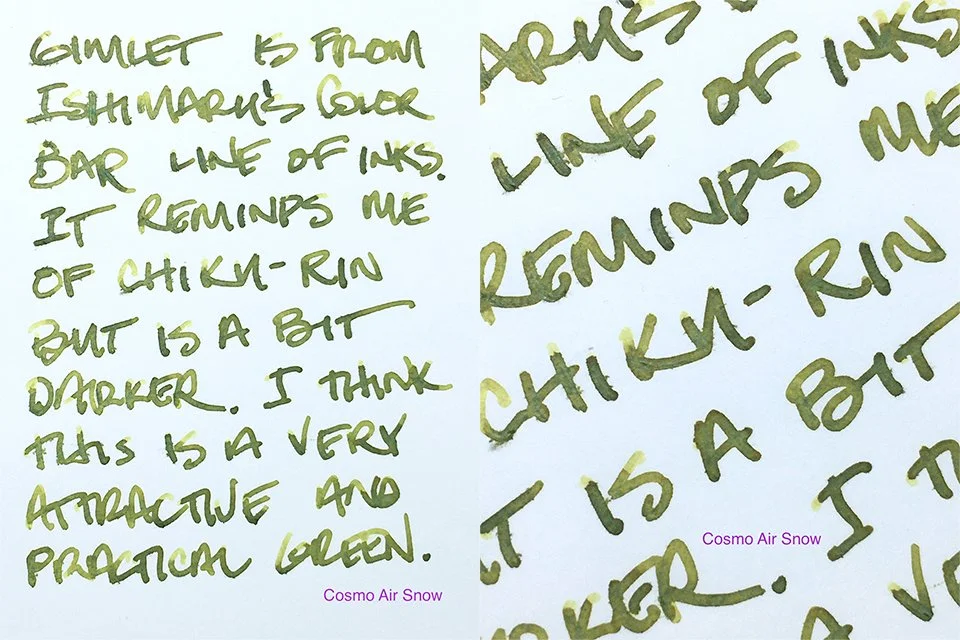 GIMLET IS FROM
ISHIMARU'S COLOR
BAR LINE OF INKS.
IT REMINDS ME
OF CHIKU-RIN
BUT IS A BIT
DARKER. I THINK
THIS IS A VERY
ATTRACTIVE AND
PRACTICAL GREEN.
Cosmo Air Snow
ARU'S
LINE OF INKS
REMINDS ME
CHIKU-RIN
T IS A BIT
RKER. I TH
A VE
Cosmo Air Snow